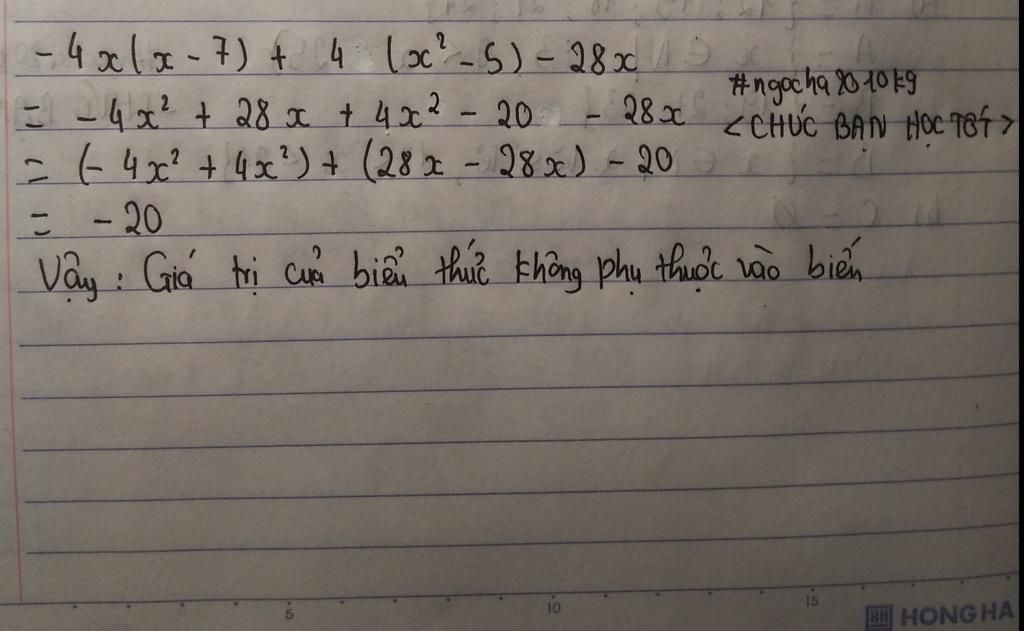 -4x(x-7) + 4 (x² - 5) - 28x
= -4x² + 28x + 4x² - 20 - 28x
= (-4x² + 4x²) + (28x - 28x) - 20
= -20
Vậy: Giá trị của biểu thức không phụ thuộc vào biến
#ngocha2010kg
<CHÚC BẠN HỌC TỐT>
5 10 15
HONG HA